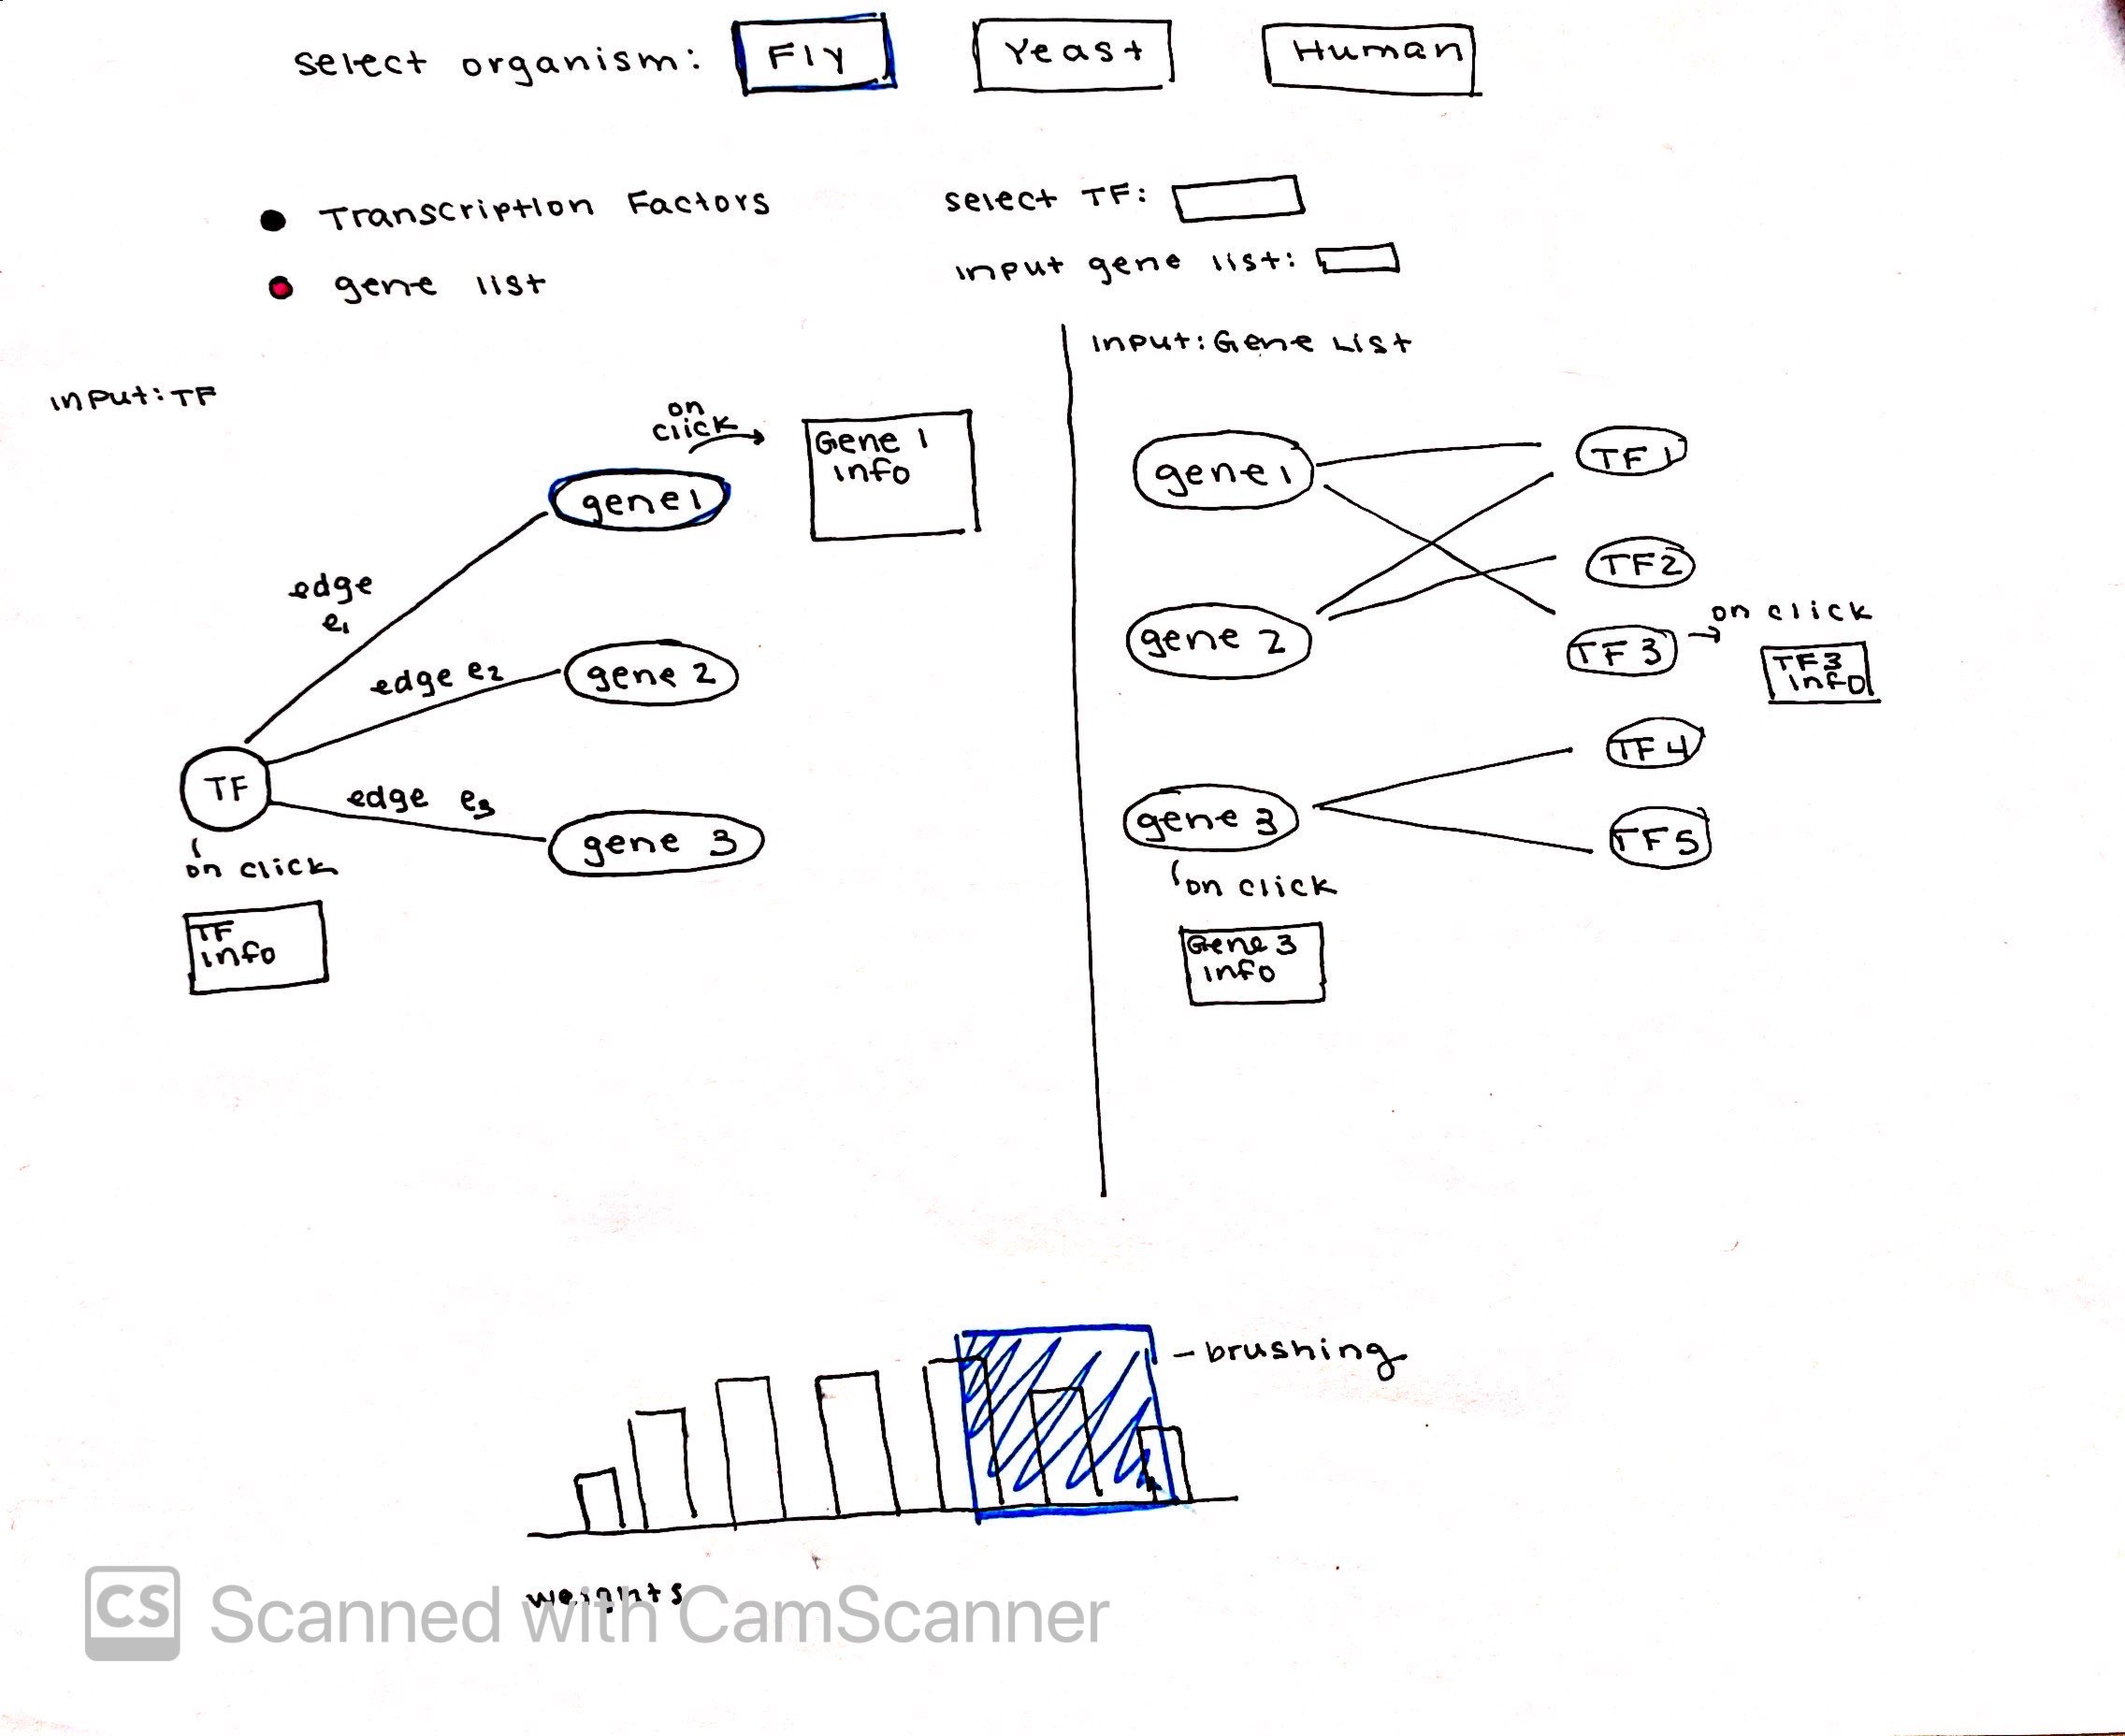 select organism: Fly Yeast Human
Transcription Factors
select TF:
gene list
input gene list:
Input: Gene List
input: TF
on
click
Gene 1
info
gene 1
edge
e1
edge e2
gene 2
TF
edge e3
gene 3
on click
TF
info
gene 1
TF 1
TF2
gene 2
on click
TF 3
TF3
info
TF 4
gene 3
TF5
on click
Gene 3
info
brushing
weights
CS Scanned with CamScanner